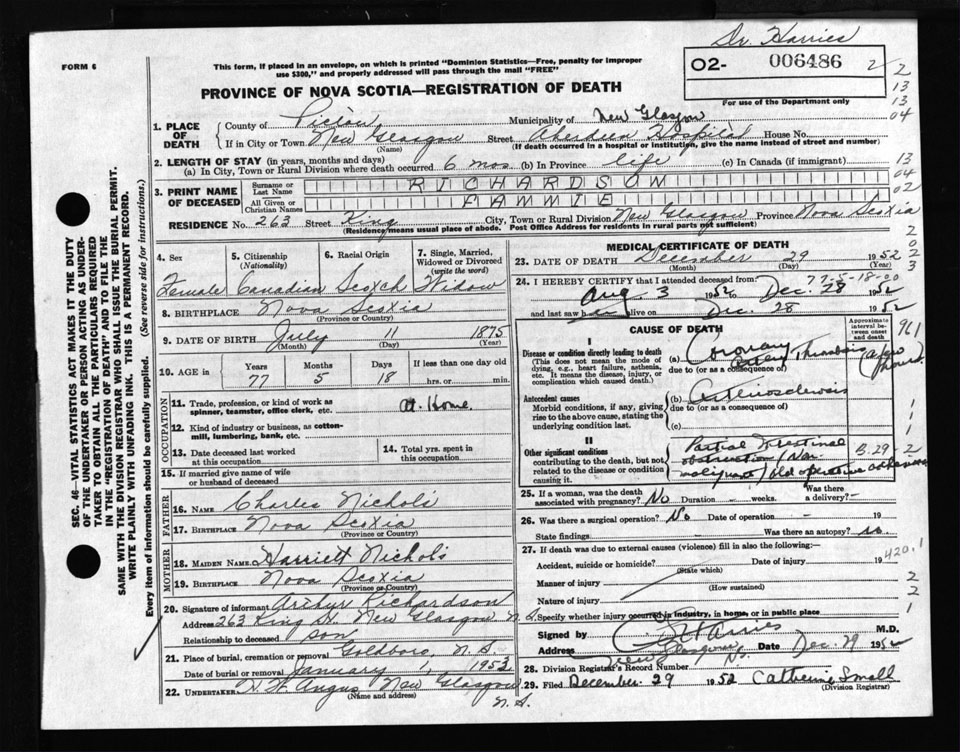 Dr. Harries
FORM 6
This form, if placed in an envelope, on which is printed "Dominion Statistics—Free, penalty for improper
use $300," and properly addressed will pass through the mail "FREE"
O2- 006486
2/2
13
13
04
For use of the Department only
PROVINCE OF NOVA SCOTIA—REGISTRATION OF DEATH
1. PLACE OF DEATH
County of Pictou Municipality of New Glasgow
If in City or Town New Glasgow Street Aberdeen Hospital House No.
(Name) (If death occurred in a hospital or institution, give the name instead of street and number)
2. LENGTH OF STAY (in years, months and days)
(a) In City, Town or Rural Division where death occurred 6 mos. (b) In Province life (c) In Canada (if immigrant)
13
04
02
3. PRINT NAME OF DECEASED
Surname or Last Name RICHARDSON
All Given or Christian Names FAMMIE
RESIDENCE No. 263 Street King City, Town or Rural Division New Glasgow Province Nova Scotia
(Residence means usual place of abode. Post Office Address for residents in rural parts not sufficient)
2
0
2
3
4. Sex
Female
5. Citizenship
(Nationality)
Canadian
6. Racial Origin
Scotch
7. Single, Married, Widowed or Divorced
(write the word)
Widow
8. BIRTHPLACE Nova Scotia
(Province or Country)
9. DATE OF BIRTH July 11 1875
(Month) (Day) (Year)
10. AGE in
Years 77
Months 5
Days 18
If less than one day old
hrs. or min.
OCCUPATION
11. Trade, profession, or kind of work as spinner, teamster, office clerk, etc. At Home.
12. Kind of industry or business, as cotton-mill, lumbering, bank, etc.
13. Date deceased last worked at this occupation
14. Total yrs. spent in this occupation
15. If married give name of wife or husband of deceased
FATHER
16. Name Charles Nichols
17. Birthplace Nova Scotia
(Province or Country)
MOTHER
18. Maiden Name Harriett Nichols
19. Birthplace Nova Scotia
(Province or Country)
20. Signature of informant Arthur Richardson
Address 263 King St. New Glasgow N.S.
Relationship to deceased son
21. Place of burial, cremation or removal Goldboro, N.S.
Date of burial or removal January 1, 1953
22. Undertaker Angus New Glasgow N.S.
(Name and address)
MEDICAL CERTIFICATE OF DEATH
23. DATE OF DEATH December 29 1952
(Month) (Day) (Year)
77-5-18-00
24. I HEREBY CERTIFY that I attended deceased from:
Aug 3 1952 to Dec. 28 1952
and last saw h alive on Dec. 28 1952
CAUSE OF DEATH
Approximate interval between onset and death
961
I
Disease or condition directly leading to death
(This does not mean the mode of dying, e.g., heart failure, asthenia, etc. It means the disease, injury, or complication which caused death.)
(a) Coronary Artery Thrombosis (a few hours)
due to (or as a consequence of)
Antecedent causes
Morbid conditions, if any, giving rise to the above cause, stating the underlying condition last.
(b) Arteriosclerosis
due to (or as a consequence of)
(c)
1
1
1
II
Other significant conditions
contributing to the death, but not related to the disease or condition causing it.
Partial Intestinal
obstruction (Non-
malignant) old operative adhesions
B.29-2
25. If a woman, was the death associated with pregnancy? No Duration - weeks. Was there a delivery? -
26. Was there a surgical operation? No Date of operation - 19
State findings Was there an autopsy? no.
27. If death was due to external causes (violence) fill in also the following:—
Accident, suicide or homicide? Date of injury 19
(State which)
420.1
Manner of injury
(How sustained)
2
Nature of injury
2
Specify whether injury occurred in industry, in home, or in public place
1
Signed by Harries M.D.
Address New Glasgow N.S. Date Dec. 29 1952
28. Division Registrar's Record Number
29. Filed December. 29 1952 Catherine Small
(Division Registrar)
SEC. 46—VITAL STATISTICS ACT MAKES IT THE DUTY
OF THE UNDERTAKER OR PERSON ACTING AS UNDER-
TAKER TO OBTAIN ALL THE PARTICULARS REQUIRED
IN THE "REGISTRATION OF DEATH" AND TO FILE THE
SAME WITH THE DIVISION REGISTRAR WHO SHALL ISSUE THE BURIAL PERMIT.
WRITE PLAINLY WITH UNFADING INK. THIS IS A PERMANENT RECORD.
Every item of information should be carefully supplied. (See reverse side for instructions.)